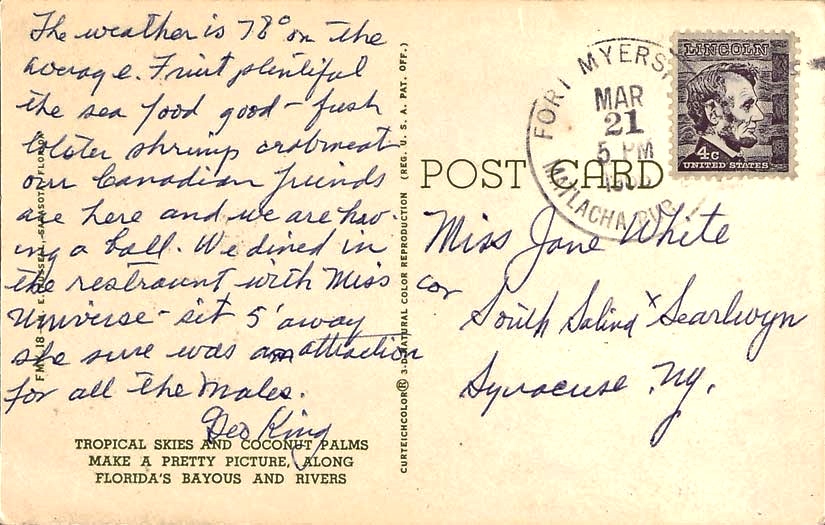 The weather is 78° on the
average. Fruit plentiful
the sea food good - fish
lobster shrimp crabmeat
our Canadian friends
are here and we are hav-
ing a ball. We dined in
the restraunt with Miss
Universe - sit 5' away
she sure was an attraction
for all the males.
Geo King
TROPICAL SKIES AND COCONUT PALMS
MAKE A PRETTY PICTURE, ALONG
FLORIDA'S BAYOUS AND RIVERS
SARASOTA, FLORIDA
CURTEICHCOLOR® 3-D NATURAL COLOR REPRODUCTION (REG. U. S. A. PAT. OFF.)
POST CARD
FORT MYERS
MAR
21
5 PM
MATLACHA
LINCOLN
4c
UNITED STATES
Miss Jane White
cor
South Salina x Searlwyn
Syracuse N.Y.